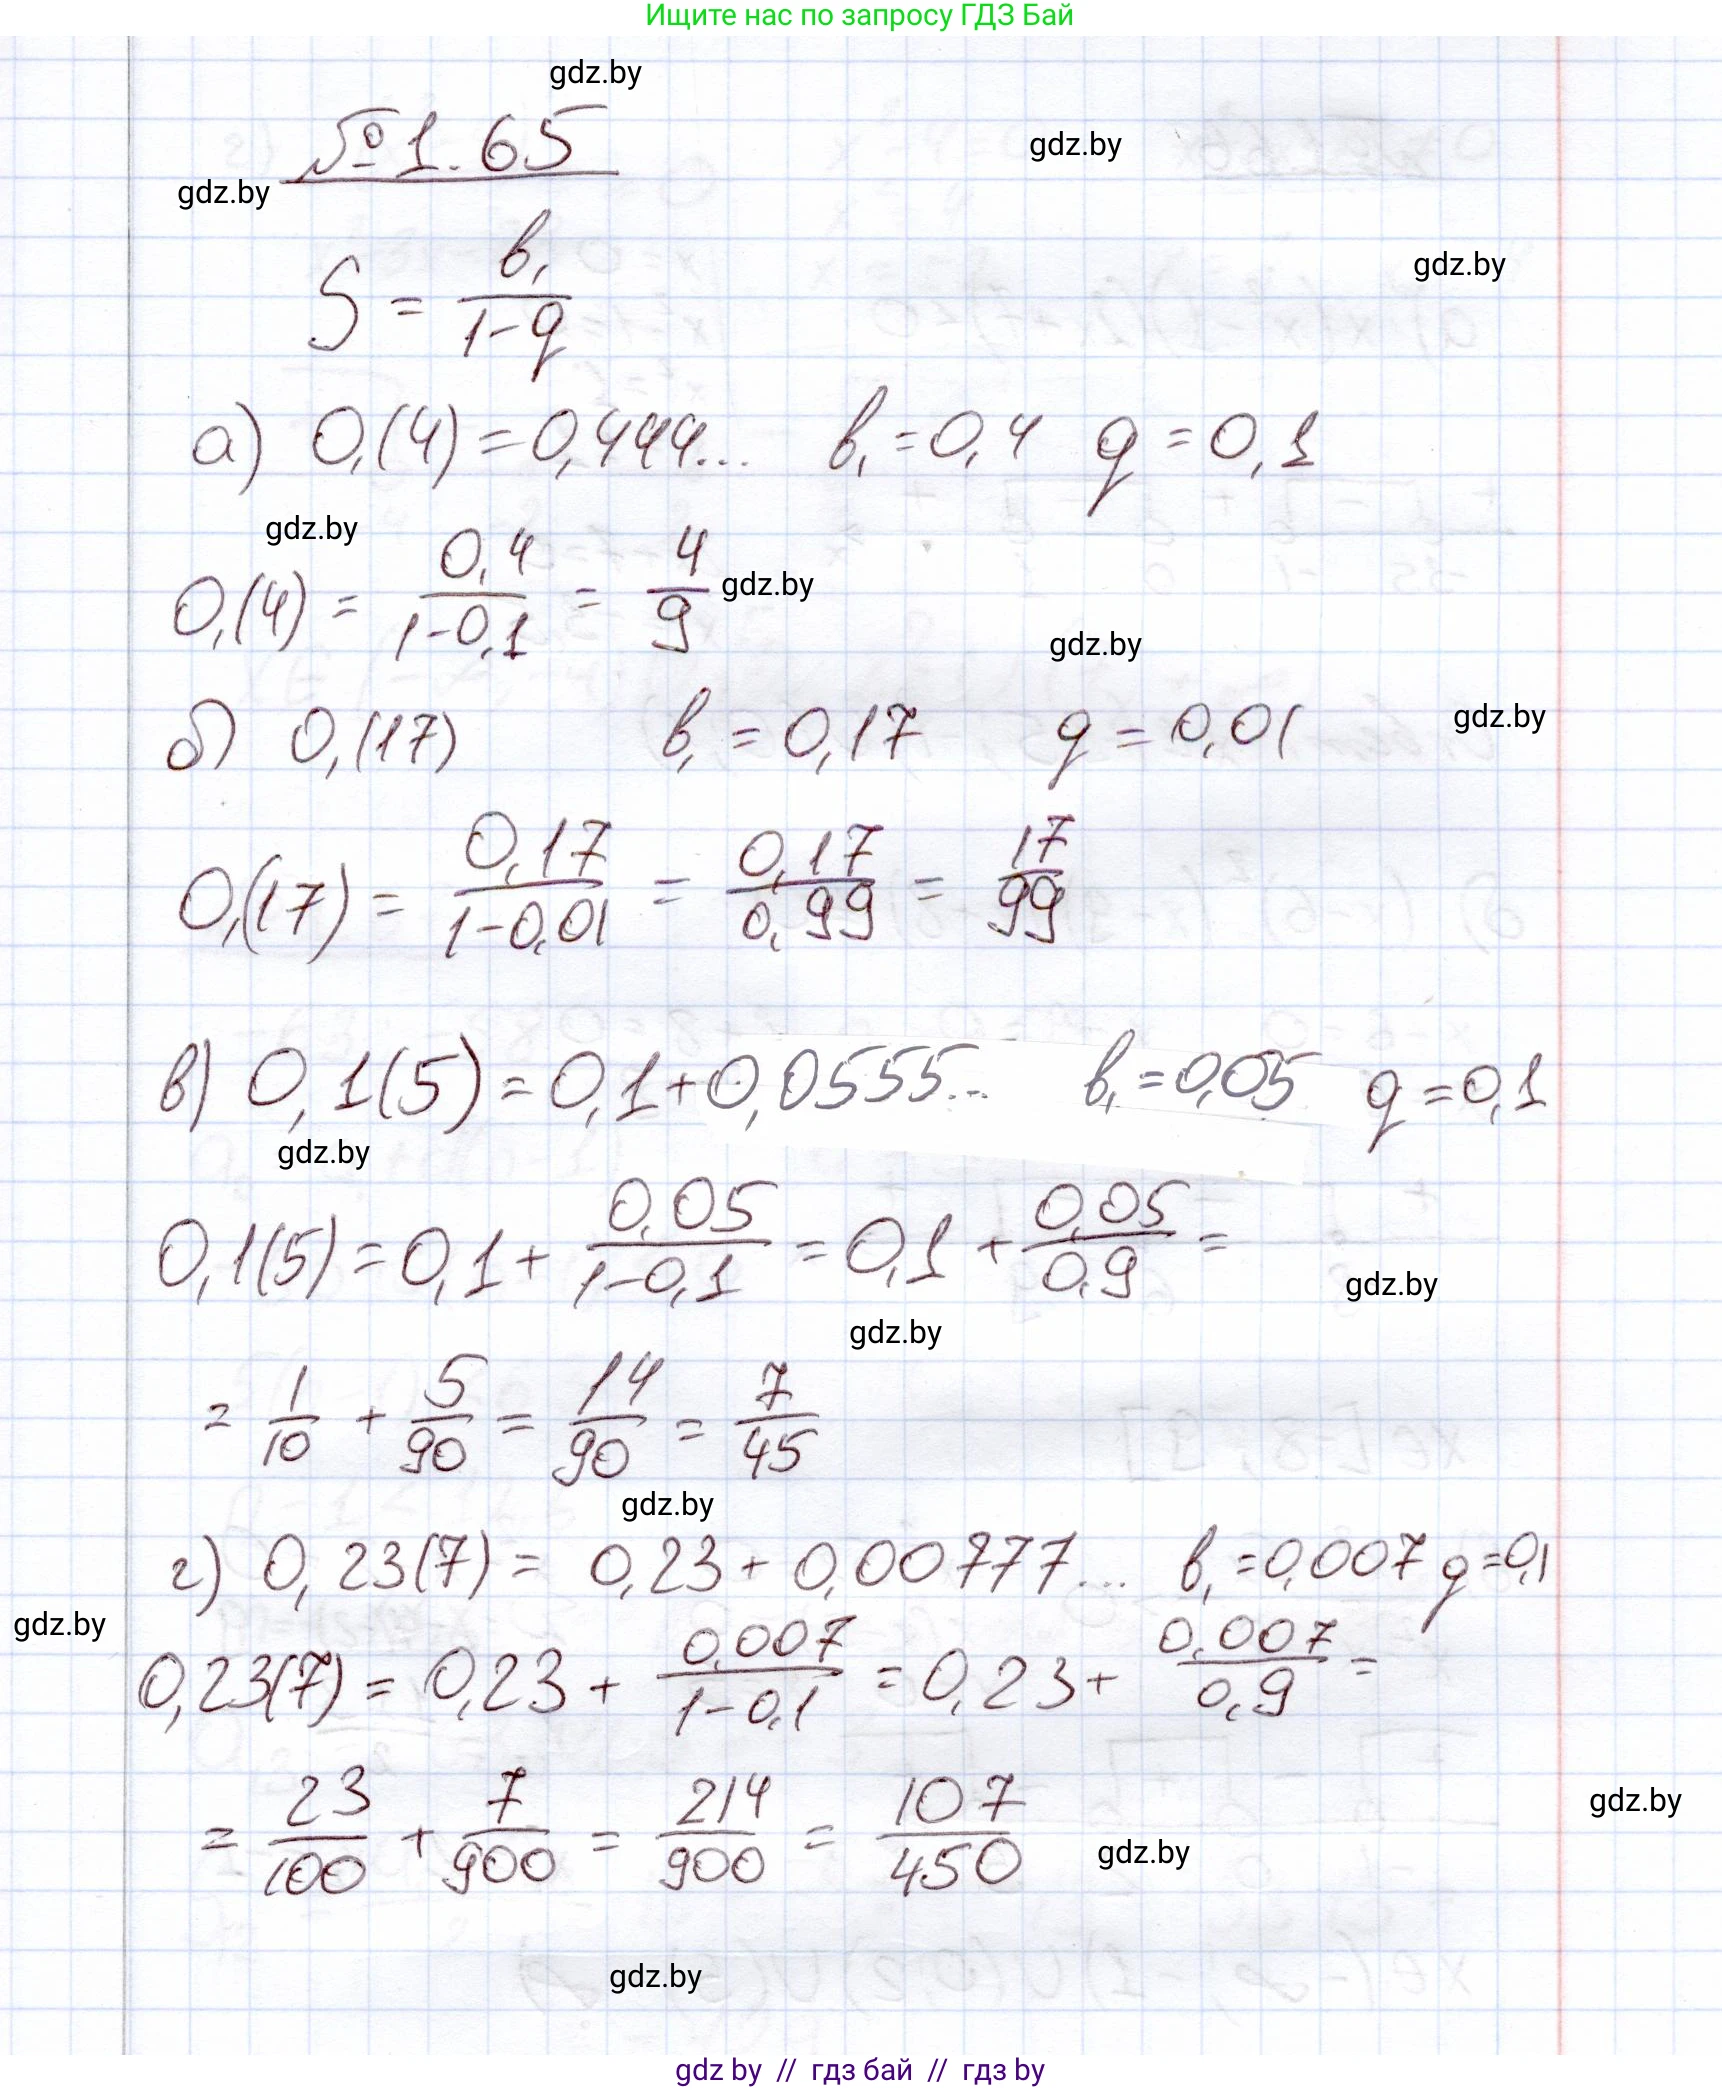 Ищите нас по запросу ГДЗ Бай
gdz.by
№ 1.65
gdz.by
gdz.by
gdz.by
S = b₁/(1-q)
а) 0,(4) = 0,444... b₁ = 0,4 q = 0,1
gdz.by
0,(4) = 0,4/(1-0,1) = 4/9
gdz.by
gdz.by
б) 0,(17) b₁ = 0,17 q = 0,01
gdz.by
0,(17) = 0,17/(1-0,01) = 0,17/0,99 = 17/99
в) 0,1(5) = 0,1 + 0,0555... b₁ = 0,05 q = 0,1
gdz.by
0,1(5) = 0,1 + 0,05/(1-0,1) = 0,1 + 0,05/0,9 =
gdz.by
gdz.by
= 1/10 + 5/90 = 14/90 = 7/45
gdz.by
г) 0,23(7) = 0,23 + 0,00777... b₁ = 0,007 q = 0,1
gdz.by
0,23(7) = 0,23 + 0,007/(1-0,1) = 0,23 + 0,007/0,9 =
= 23/100 + 7/900 = 214/900 = 107/450
gdz.by
gdz.by
gdz.by
gdz by // гдз бай // гдз by